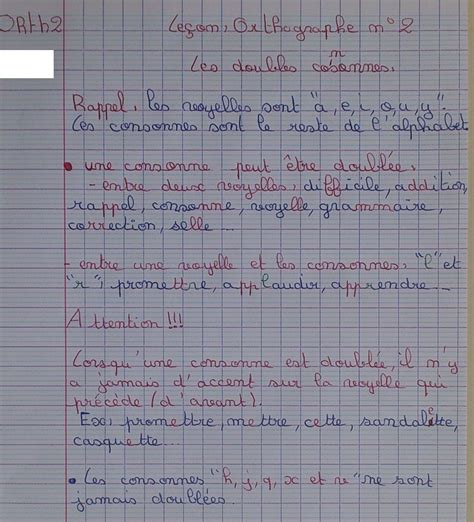 ORTH2
Leçon: Orthographe n° 2
Les doubles consonnes.
Rappel: les voyelles sont "a, e, i, o, u, y".
Les consonnes sont le reste de l'alphabet
• une consonne peut être doublée:
- entre deux voyelles: difficile, addition,
rappel, consonne, voyelle, grammaire,
correction, selle ...
- entre une voyelle et les consonnes: "l" et
"r": promettre, applaudir, apprendre ...
Attention !!!
Lorsqu'une consonne est doublée, il n'y
a jamais d'accent sur la voyelle qui
précède (d'avant).
Ex: promettre, mettre, cette, sandalette,
casquette ...
• Les consonnes "h, j, q, x et v" ne sont
jamais doublées.